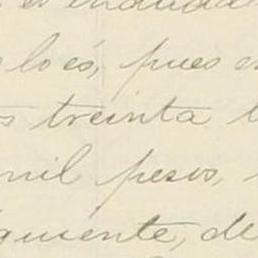 es indudab
lo és, pues e
treinta
mil pesos,
guiente, de